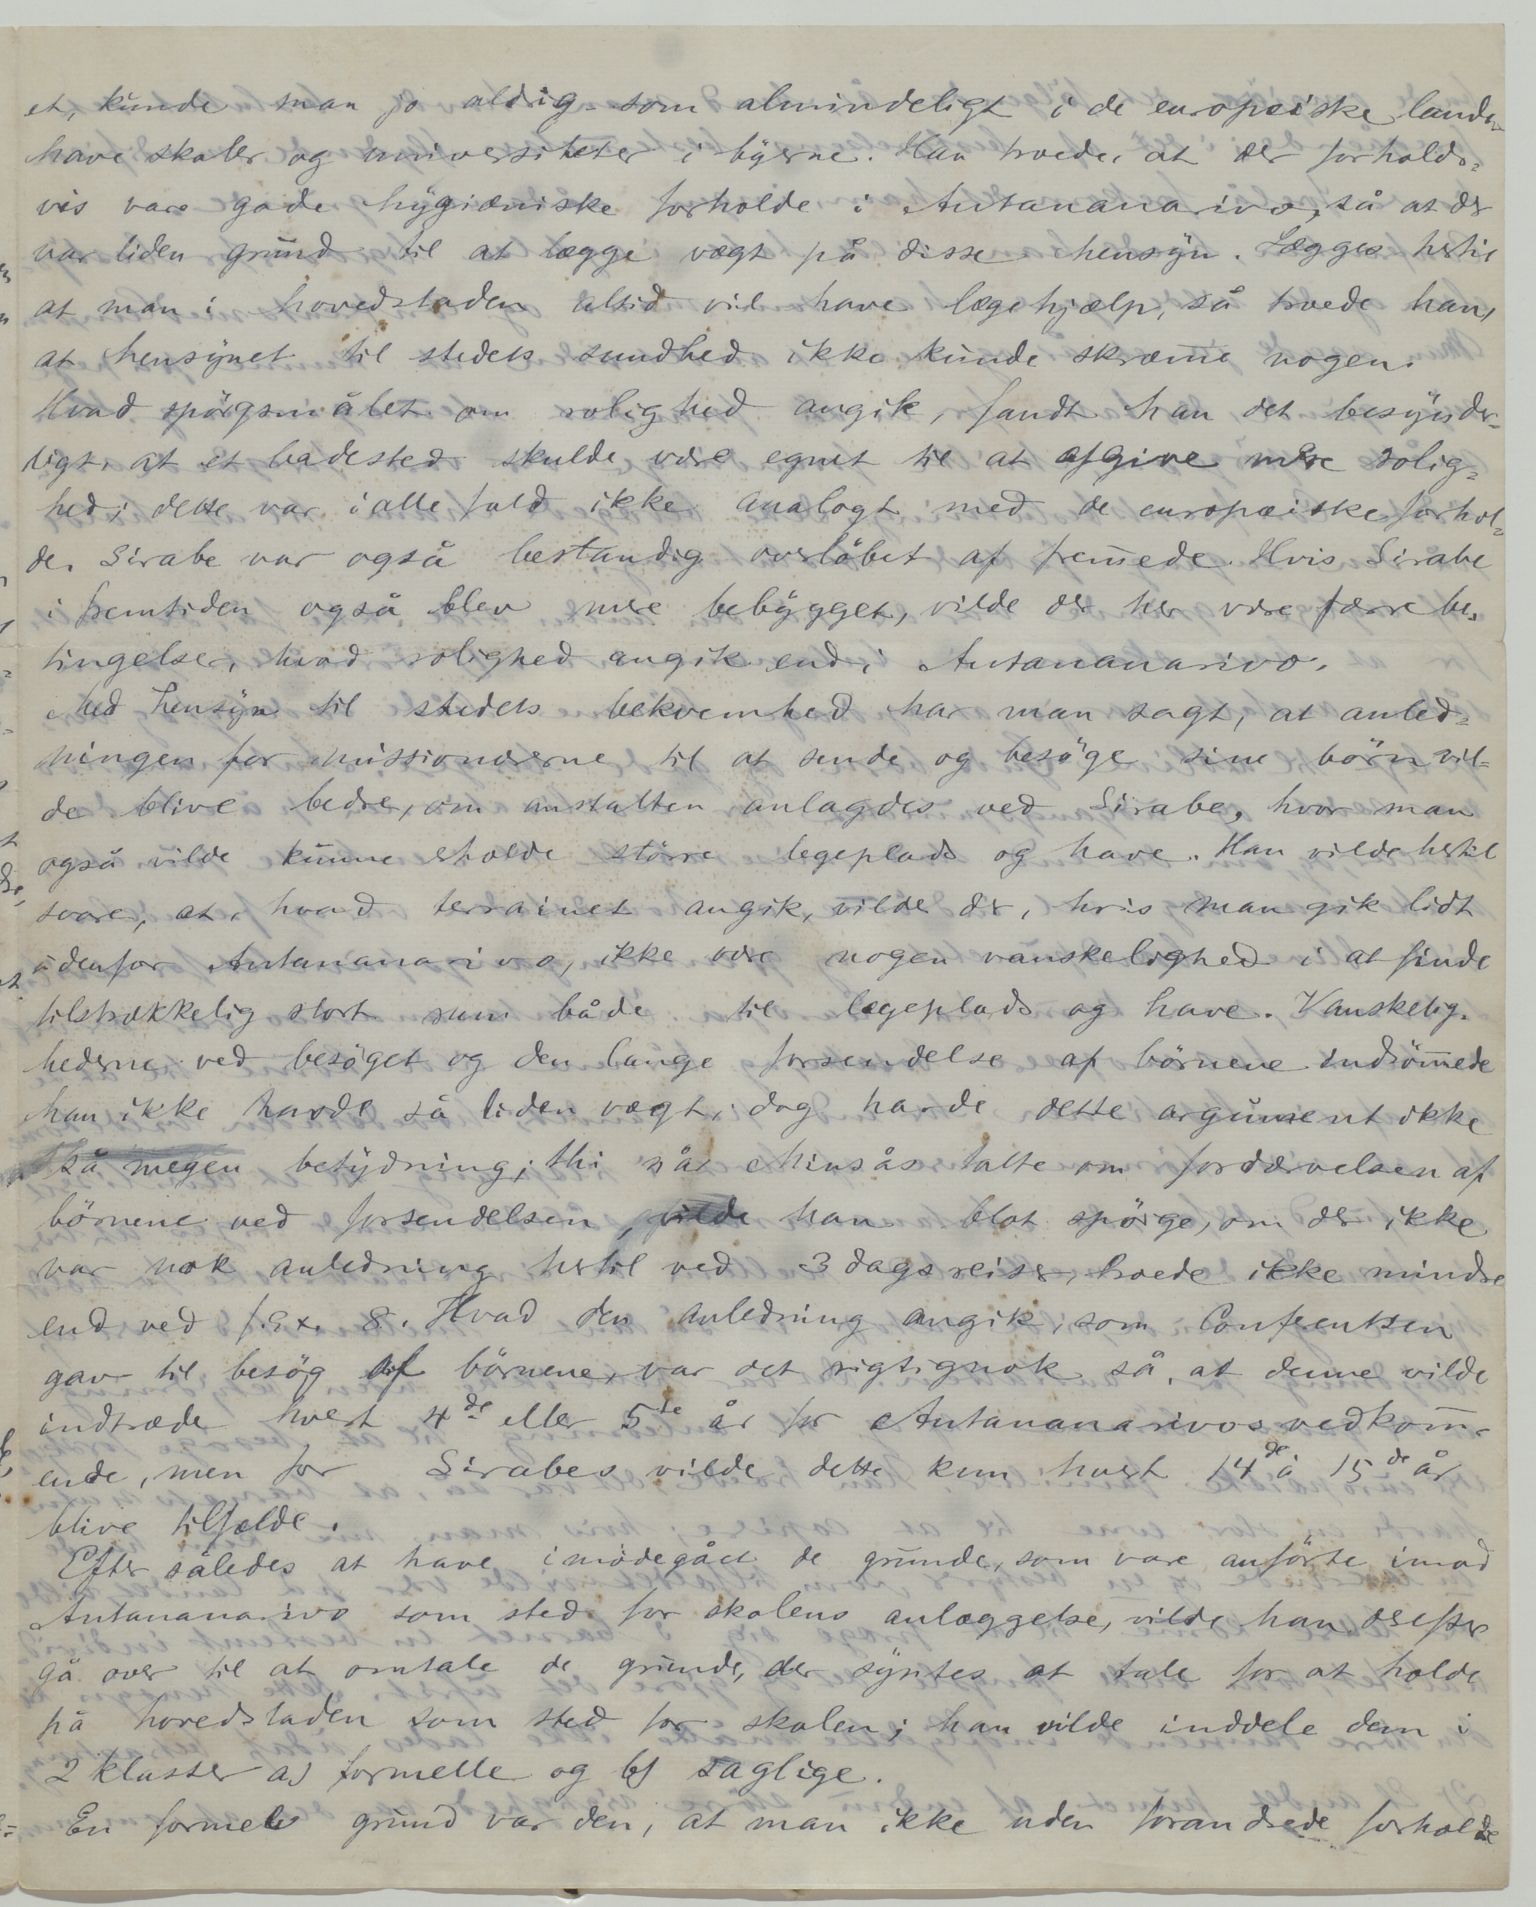 et, kunde man jo aldrig som almindeligt i de europæiske lande
have skoler og universiteter i byerne. Han troede, at der forholds=
vis vare gode hygiæniske forholde i Antananarivo, så at der
var liden grund til at lægge vægt på disse hensyn. Lægges hertil
at man i hovedstaden altid vil have lægehjælp, så troede han,
at hensynet til stedets sundhed ikke kunde skræm̅e nogen.
Hvad spörgsmålet om rolighed angik, fandt han det besynder=
ligt, at et badested skulde være egnet til at afgive mere rolig=
hed; dette var i alle fald ikke analogt med de europæiske forhol=
de. Sirabe var også bestandig overlöbet af frem̅ede. Hvis Sirabe
i fremtiden også blev mere bebygget, vilde der her være færre be=
tingelser, hvad rolighed angik end i Antananarivo.
Med hensyn til stedets bekvemhed har man sagt, at anled=
ningen for missionærerne til at sende og besöge sine börn vil=
de blive bedre, om anstalten anlagdes ved Sirabe, hvor man
også vilde kunne erholde större legeplads og have. Han vilde hertil
svare, at, hvad terrainet angik, vilde der, hvis man gik lidt
udenfor Antananarivo, ikke være nogen vanskelighed i at finde
tilstrækkelig stort rum både til legeplads og have. Vanskelig=
hederne ved besöget og den lange forsendelse af börnene indröm̅ede
han ikke havde så liden vægt, dog havde dette argument ikke
så megen betydning; thi når Minsås talte om fordærvelsen af
börnene ved forsendelsen, vilde han blot spörge, om der ikke
var nok anledning hertil ved 3 dagsreiser, troede ikke mindre
end ved f. Ex. 8. Hvad den anledning angik, som Conferentsen
gav til besög af börnene, var det rigtignok så, at denne vilde
indtræde hvert 4de eller 5te år for Antananarivos vedkom̅=
ende, men for Sirabes vilde dette kun hvert 14de à 15de år
blive tilfælde.
Efter således at have imödegået de grunde, som vare anförte imod
Antananarivo som sted for skolens anlæggelse, vilde han derefter
gå over til at omtale de grunde, der syntes at tale for at holde
på hovedstaden som sted for skolen; han vilde inddele dem i
2 klasser a) formelle og b) saglige.
En formel grund var den, at man ikke uden forandrede forholde